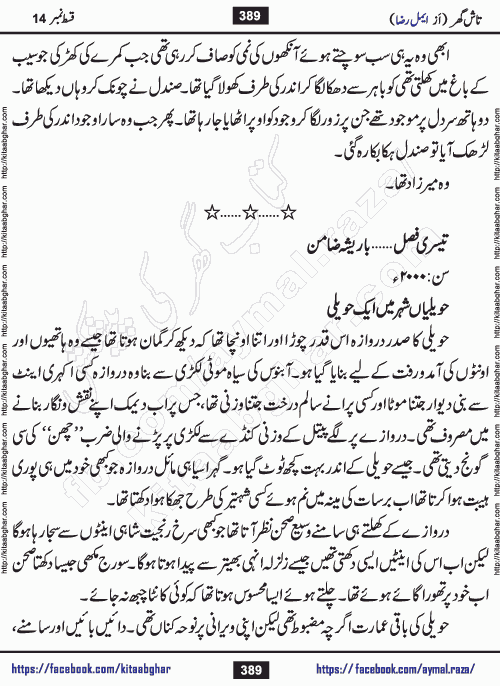 تاش گھر (از ایمل رضا)
389
قسط نمبر 14
ابھی وہ یہ ہی سب سوچتے ہوئے آنکھوں کی نمی کو صاف کر رہی تھی جب کمرے کی کھڑکی جو سیب
کے باغ میں کھلتی تھی کو باہر سے دھکا لگا کر اندر کی طرف کھولا گیا تھا۔ صندل نے چونک کر وہاں دیکھا تھا۔
دو ہاتھ سردل پر موجود تھے جن پر زور لگا کر وجود کو اوپر اٹھایا جا رہا تھا۔ پھر جب وہ سارا وجود اندر کی طرف
لڑھک آیا تو صندل ہکا بکا رہ گئی۔
وہ میرزاد تھا۔
☆......☆......☆
تیسری فصل...... باریشہ ضامن
سن: ۲۰۰۰ء
حویلیاں شہر میں ایک حویلی
حویلی کا صدر دروازہ اس قدر چوڑا اور اتنا اونچا تھا کہ دیکھ کر گمان ہوتا تھا جیسے وہ ہاتھیوں اور
اونٹوں کی آمد و رفت کے لیے بنایا گیا ہو۔ آبنوس کی سیاہ موٹی لکڑی سے بنا وہ دروازہ کسی اکہری اینٹ
سے بنی دیوار جتنا موٹا اور کسی پرانے سالم درخت جتنا وزنی تھا، جس پر اب دیمک اپنے نقش و نگار بنانے
میں مصروف تھی۔ دروازے پر لگے پیتل کے وزنی کنڈے سے لکڑی پر پڑنے والی ضرب ”چھن“ کی سی
گونج دیتی تھی۔ جیسے حویلی کے اندر بہت کچھ ٹوٹ گیا ہو۔ گہرا سیاہی مائل دروازہ جو کبھی خود میں ہی پوری
ہیبت ہوا کرتا تھا اب برسات کی مینہ میں نم ہوئے کسی شہتیر کی طرح جھکا ہوا دکھتا تھا۔
دروازے کے کھلتے ہی سامنے وسیع صحن نظر آتا تھا جو کبھی سرخ رنجیت شاہی اینٹوں سے سجا رہا ہوگا
لیکن اب اس کی اینٹیں ایسی دکھتی تھیں جیسے زلزلہ انہی بھیتر سے پیدا ہوتا ہوگا۔ سورج مکھی جیسا دکھتا صحن
اب خود پر تھور اگائے ہوئے تھا۔ چلتے ہوئے ایسا محسوس ہوتا تھا کہ کوئی کانٹا چبھ نہ جائے۔
حویلی کی باقی عمارت اگرچہ مضبوط تھی لیکن اپنی ویرانی پر نوحہ کناں تھی۔ دائیں بائیں اور سامنے،
https://facebook.com/kitaabghar
389
https://facebook.com/aymal.raza/
http://kitaabghar.com
http://kitaabghar.com